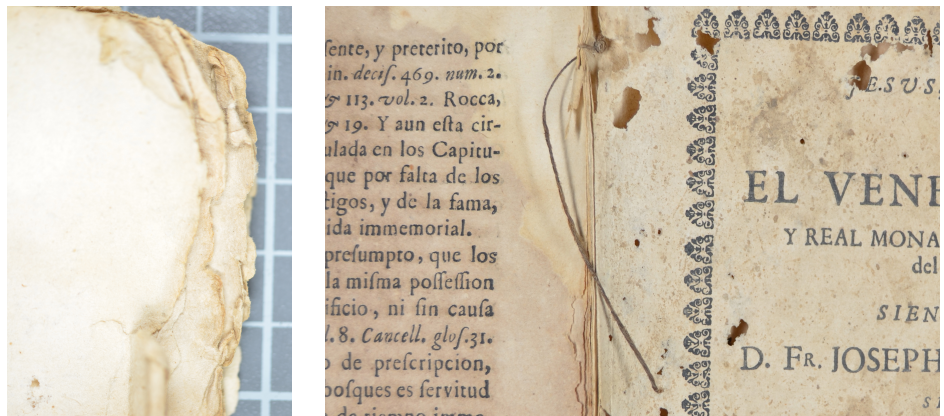 ſente, y preterito, por
in. deciſ. 469. num. 2.
& 113. vol. 2. Rocca,
& 19. Y aun eſta cir-
ulada en los Capitu-
que por falta de los
tigos, y de la fama,
ida immemorial.
preſumpto, que los
la miſma poſſeſſion
ificio, ni ſin cauſa
l. 8. Cancell. gloſ. 31.
o de preſcripcion,
boſques es ſervitud
de tiempo imme-
JESUS,
EL VENE
Y REAL MONA
del
SIEN
D. FR. JOSEPH